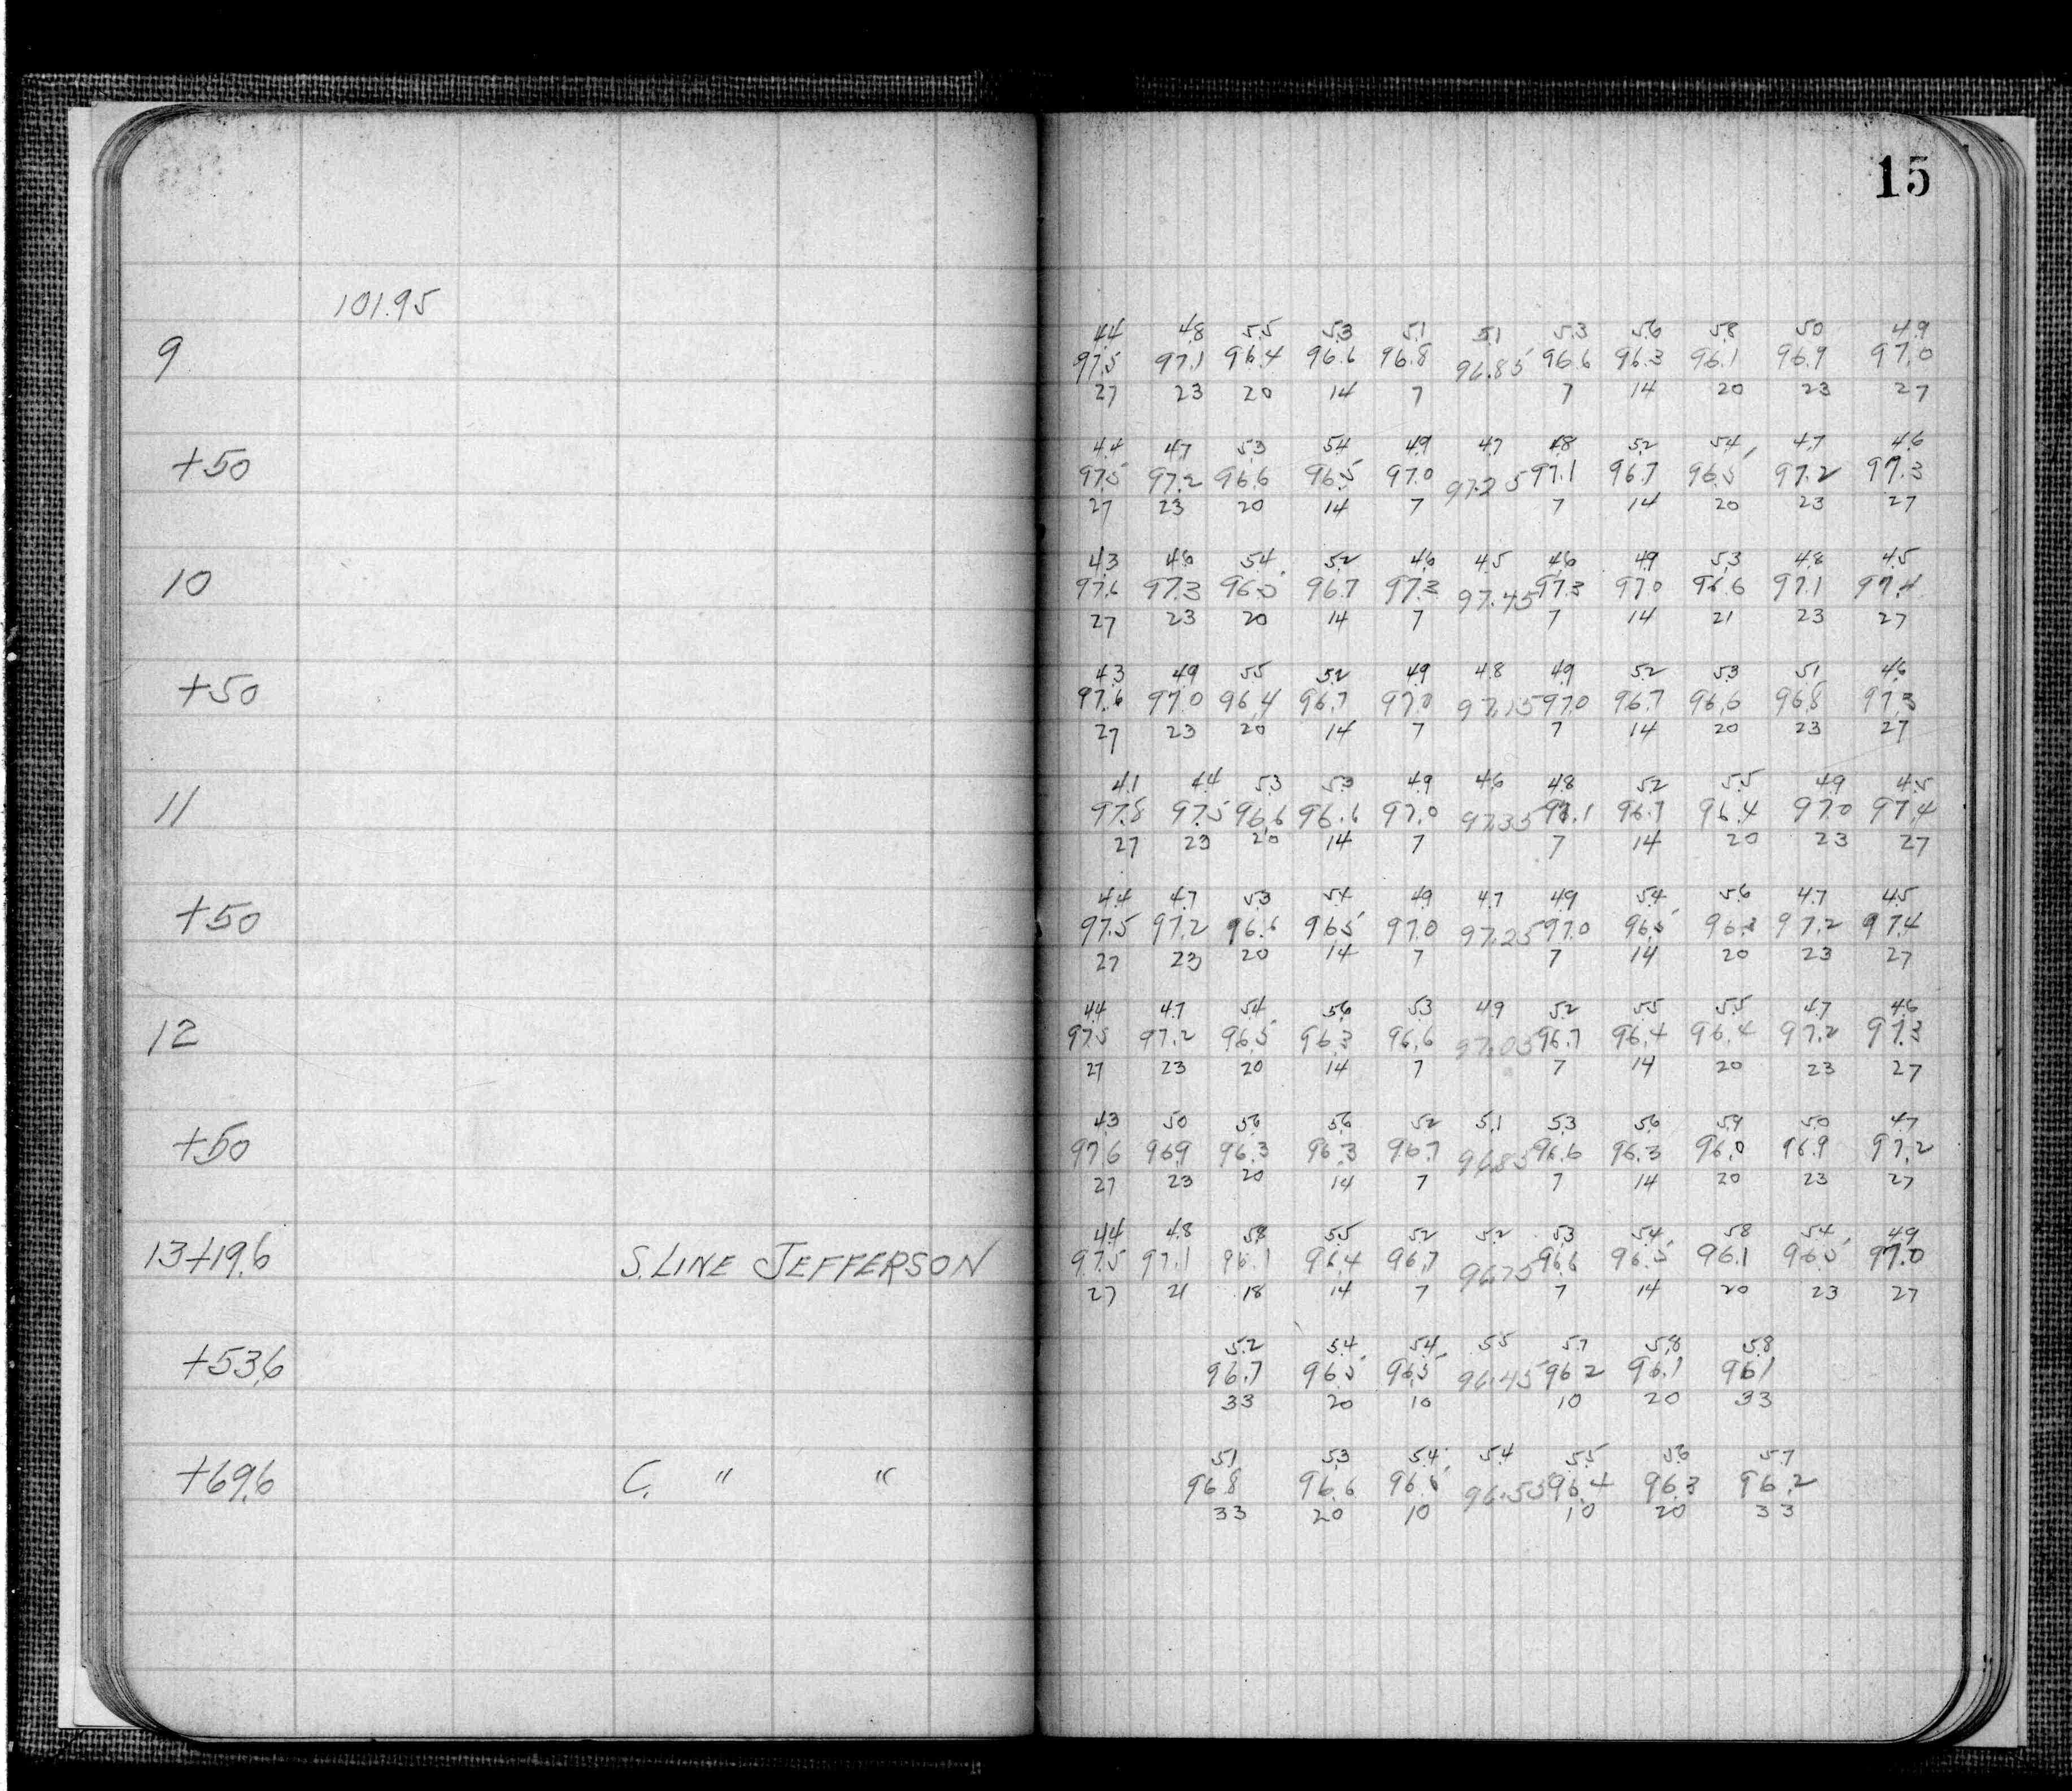 15
101.95
4.4 4.8 5.5 5.3 5.1 5.1 5.3 5.6 5.8 5.0 4.9
9 97.5 97.1 96.4 96.6 96.8 96.85 96.6 96.3 96.1 96.9 97.0
27 23 20 14 7 7 14 20 23 27
4.4 4.7 5.3 5.4 4.9 4.7 4.8 5.2 5.4 4.7 4.6
+50 97.5 97.2 96.6 96.5 97.0 97.25 97.1 96.7 96.5 97.2 97.3
27 23 20 14 7 7 14 20 23 27
4.3 4.6 5.4 5.2 4.6 4.5 4.6 4.9 5.3 4.8 4.5
10 97.6 97.3 96.5 96.7 97.3 97.45 97.3 97.0 96.6 97.1 97.4
27 23 20 14 7 7 14 21 23 27
4.3 4.9 5.5 5.2 4.9 4.8 4.9 5.2 5.3 5.1 4.6
+50 97.6 97.0 96.4 96.7 97.0 97.15 97.0 96.7 96.6 96.8 97.3
27 23 20 14 7 7 14 20 23 27
4.1 4.4 5.3 5.3 4.9 4.6 4.8 5.2 5.5 4.9 4.5
11 97.8 97.5 96.6 96.6 97.0 97.35 97.1 96.7 96.4 97.0 97.4
27 23 20 14 7 7 14 20 23 27
4.4 4.7 5.3 5.4 4.9 4.7 4.9 5.4 5.6 4.7 4.5
+50 97.5 97.2 96.6 96.5 97.0 97.25 97.0 96.5 96.3 97.2 97.4
27 23 20 14 7 7 14 20 23 27
4.4 4.7 5.4 5.6 5.3 4.9 5.2 5.5 5.5 4.7 4.6
12 97.5 97.2 96.5 96.3 96.6 97.05 96.7 96.4 96.4 97.2 97.3
27 23 20 14 7 7 14 20 23 27
4.3 5.0 5.6 5.6 5.2 5.1 5.3 5.6 5.9 5.0 4.7
+50 97.6 96.9 96.3 96.3 96.7 96.85 96.6 96.3 96.0 96.9 97.2
27 23 20 14 7 7 14 20 23 27
4.4 4.8 5.8 5.5 5.2 5.2 5.3 5.4 5.8 5.4 4.9
13+19.6 S. LINE JEFFERSON 97.5 97.1 96.1 96.4 96.7 96.75 96.6 96.5 96.1 96.5 97.0
27 21 18 14 7 7 14 20 23 27
5.2 5.4 5.4 5.5 5.7 5.8 5.8
+53.6 96.7 96.5 96.5 96.45 96.2 96.1 96.1
33 20 10 10 20 33
5.1 5.3 5.4 5.4 5.5 5.6 5.7
+69.6 C. " " 96.8 96.6 96.5 96.55 96.4 96.3 96.2
33 20 10 10 20 33